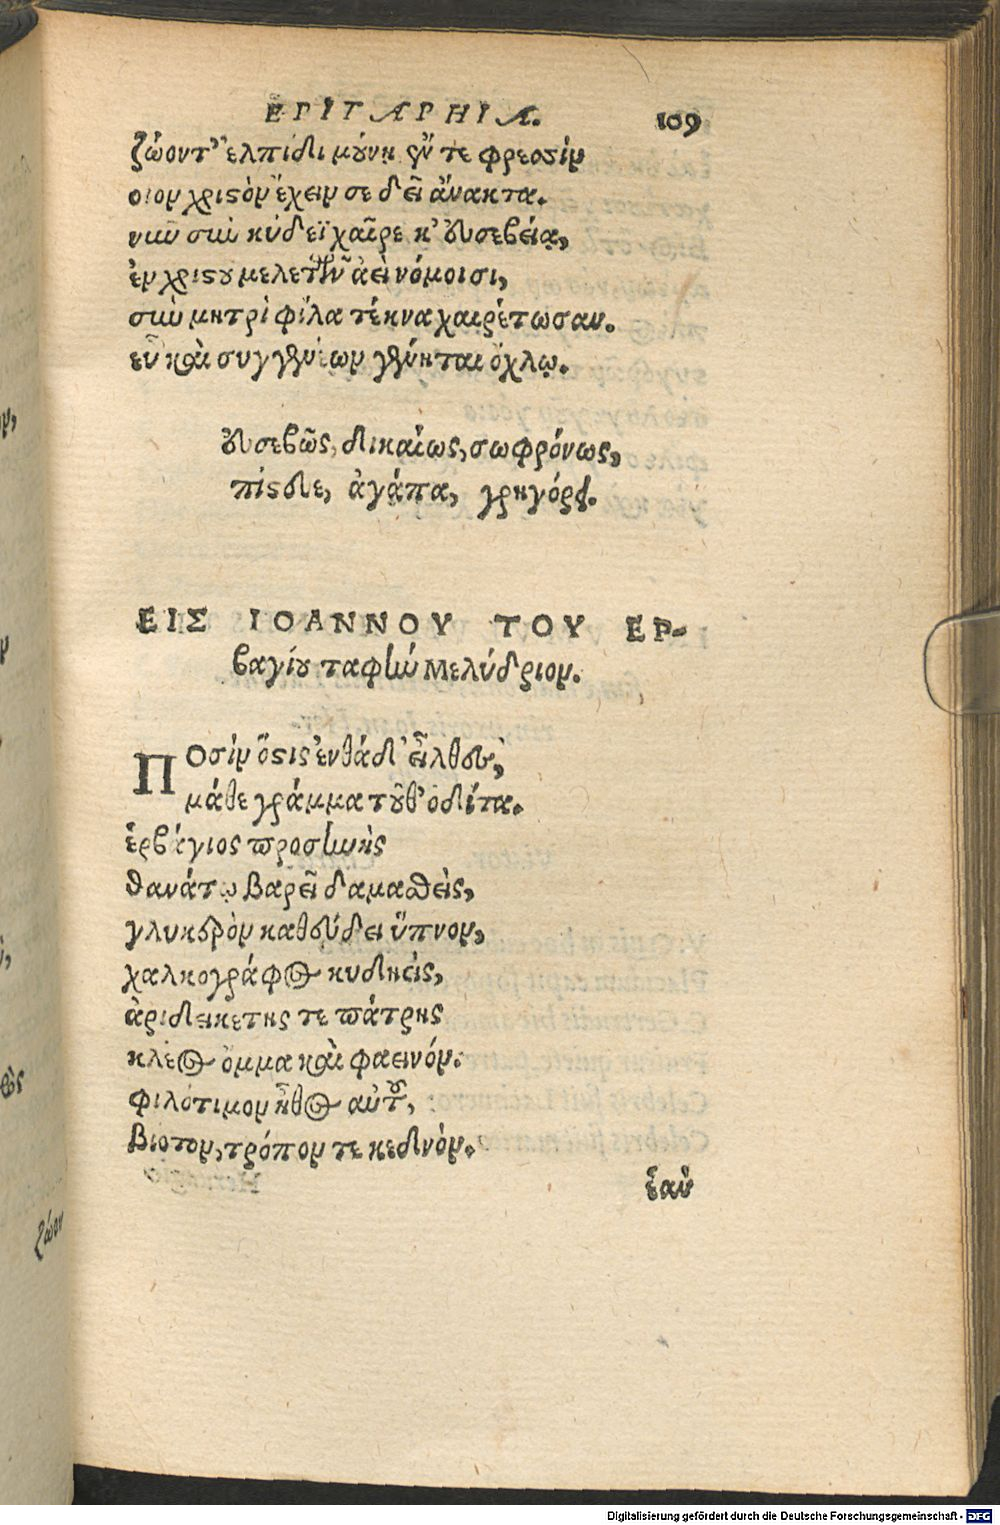 EPITAPHIA. 109
ζώοντ' ἐλπίδι μούνῃ ἔν τε φρεσὶν
οἷον χριστὸν ἔχειν σε δεῖ ἄνακτα.
νῦν σὺν κύδεϊ χαῖρε κ' εὐσεβείᾳ,
ἐν χριστοῦ μελετῶν ἀεὶ νόμοισι,
σὺν μητρὶ φίλα τέκνα χαιρέτωσαν.
εὖ καὶ συγγενέων γένηται ὄχλῳ.
εὐσεβῶς, δικαίως, σωφρόνως,
πίστευε, ἀγάπα, γρηγόρει.
ΕΙΣ ΙΟΑΝΝΟΥ ΤΟΥ ΕΡ-
βαγίου ταφὴν Μελύδριον.
Ποσὶν ὅστις ἐνθάδ' εἶλθες,
μάθε γράμμα τοῦθ' ὁδίτα.
ἑρβάγιος προσηνὴς
θανάτῳ βαρεῖ δαμασθεὶς,
γλυκερὸν καθεύδει ὕπνον,
χαλκογράφος κυδήεις,
ἀριδεικέτης τε πάτρης
κλέος ὄμμα καὶ φαεινόν.
φιλότιμον ἦθος αὐτοῦ,
βίοτον, τρόπον τε κεδνὸν.
ἑαυ
ζώον